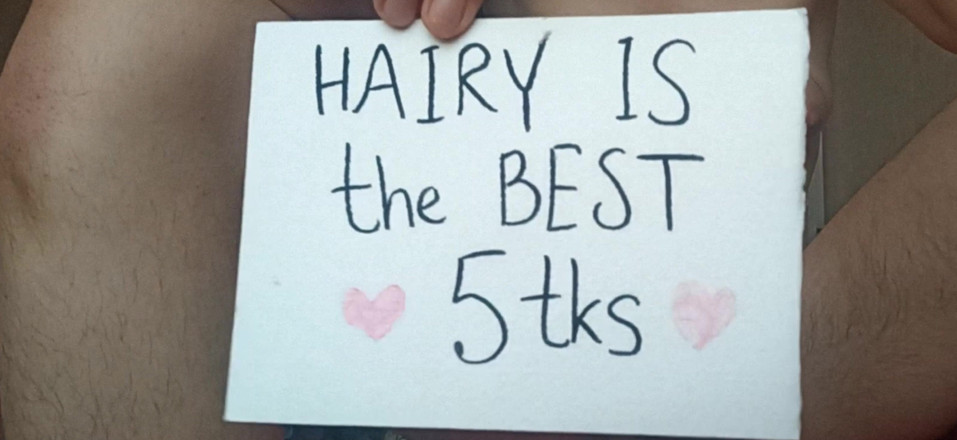 HAIRY IS
the BEST
5 tks